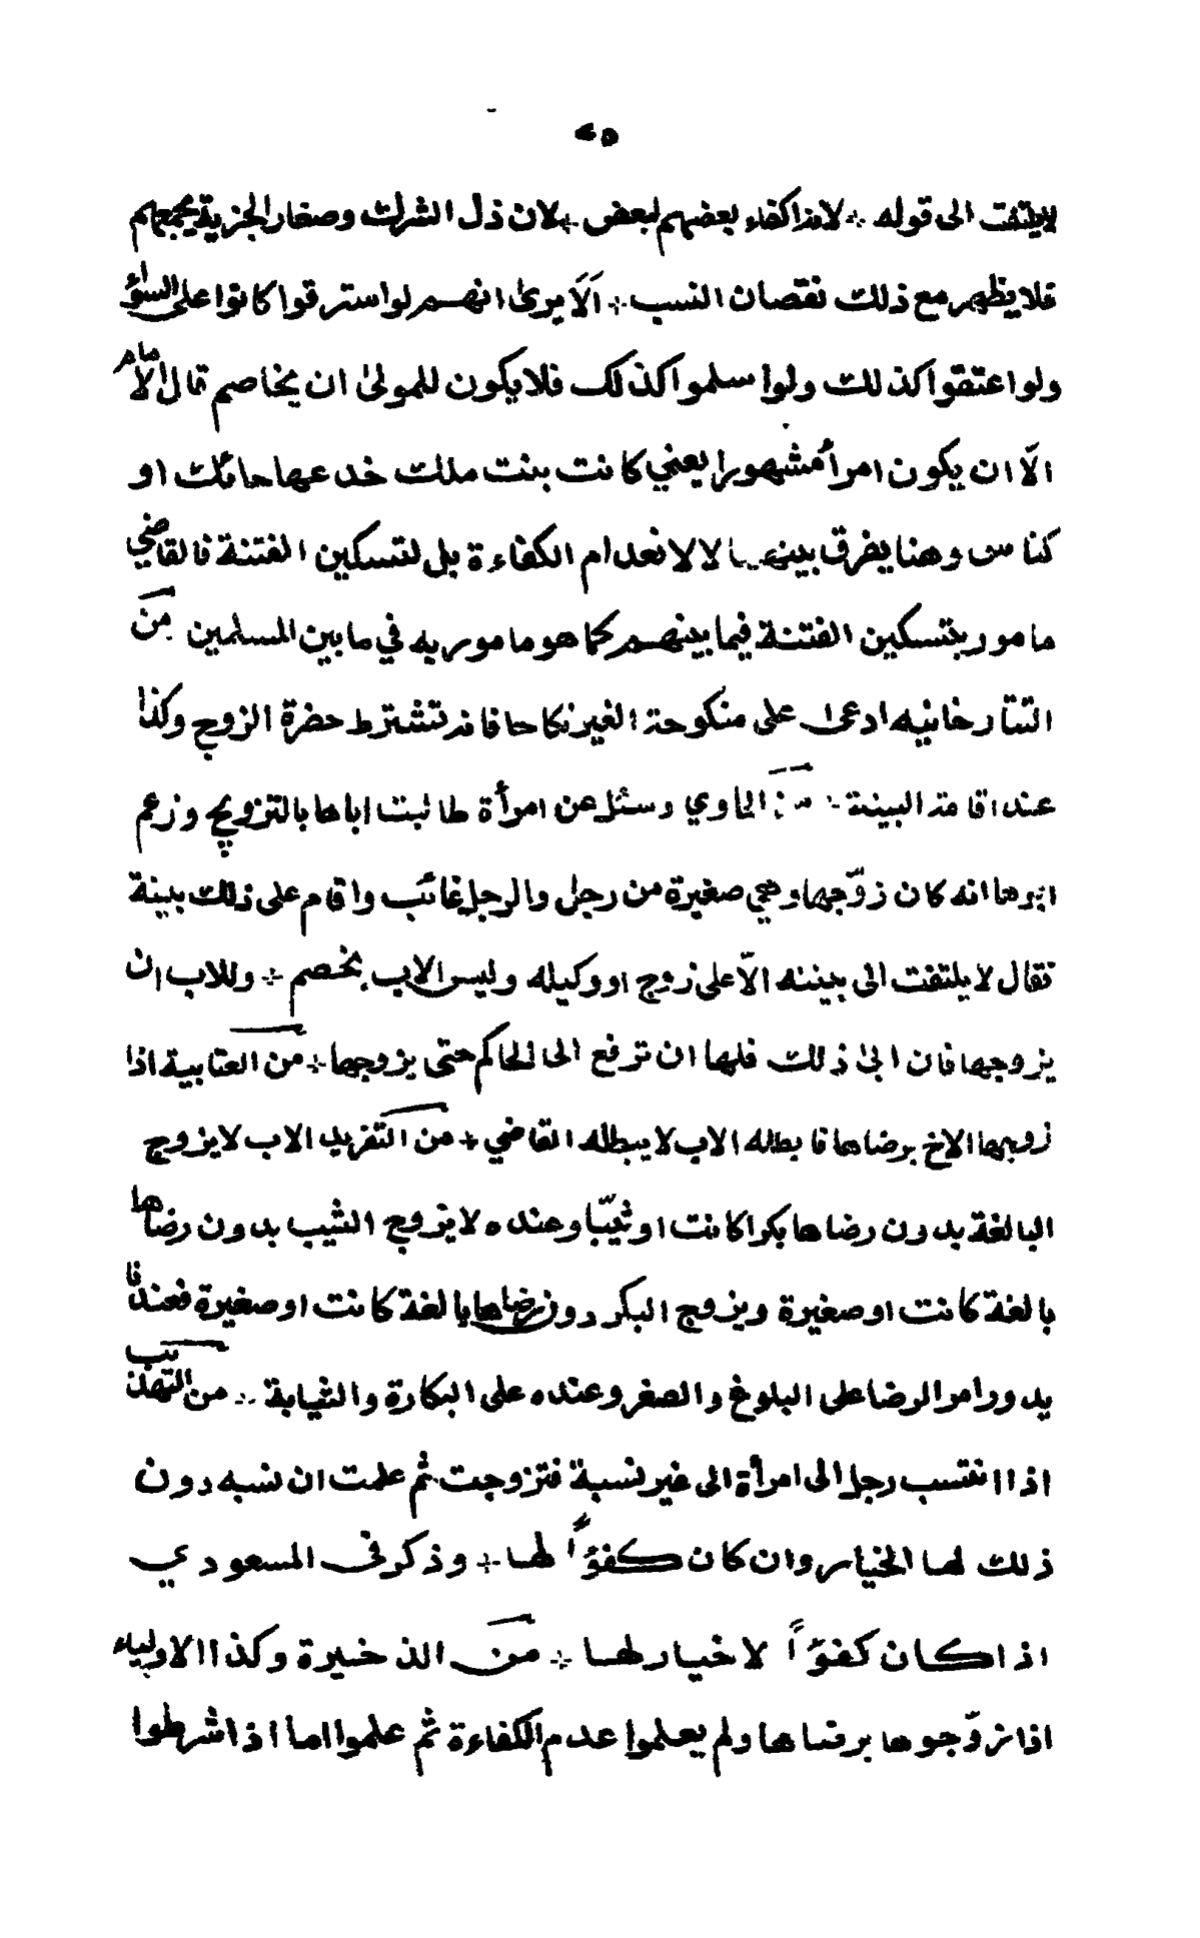 ٤٥
لا يلتفت الى قوله ÷ لانه اكفاء بعضهم لبعض ÷ لان ذل الشرك وصغار الجزية يجمعهم
فلا يظهر مع ذلك نقصان النسب ÷ اَلَا يرىٰ انهم لو استرقوا كانوا على السواء
ولو اعتقوا كذلك ولو اسلموا كذلك فلا يكون للمولىٰ ان يخاصم قال الامام
الّا ان يكون امرأ مشهورا يعني كانت بنت ملك خدعها حائك او
كناس وهنا يفرق بينهما لا لانعدام الكفاءة بل لتسكين الفتنة فالقاضي
مامور بتسكين الفتنة فيما بينهم كما هو مامور به في ما بين المسلمين من
التتارخانيه ادعىٰ على منكوحة الغير نكاحا فانه تشترط حضرة الزوج وكذا
عند اقامة البينة ÷ من الحاوي وسئل عن امرأة طالبت اباها بالتزويج وزعم
ابوها انه كان زوّجها وهي صغيرة من رجل والرجل غائب واقام على ذلك بينة
فقال لا يلتفت الى بينته الّا على زوج او وكيله وليس الاب بخصم ÷ وللاب ان
يزوجها فان ابىٰ ذلك فلها ان ترفع الى الحاكم حتى يزوجها ÷ من العتابية اذا
زوجها الاخ برضاها فابطله الاب لا يبطله القاضي ÷ من التفريد الاب لا يزوج
البالغة بدون رضاها بكرا كانت او ثيّبا وعنده لا يزوج الثيب بدون رضاها
بالغة كانت او صغيرة ويزوج البكر دون رضاها بالغة كانت او صغيرة فعندنا
يدور امر الرضا على البلوغ والصغر وعنده على البكارة والثيابة ÷ من التهذيب
اذا انتسب رجل الى امرأة الى غير نسبة فتزوجت ثم علمت ان نسبه دون
ذلك لها الخيار وان كان كفؤاً لها ÷ وذكر في المسعودي
اذا كان كفؤاً لا خيار لها ÷ من الذخيرة وكذا الاولياء
اذا زوّجوها برضاها ولم يعلموا عدم الكفاءة ثم علموا اما اذا شرطوا